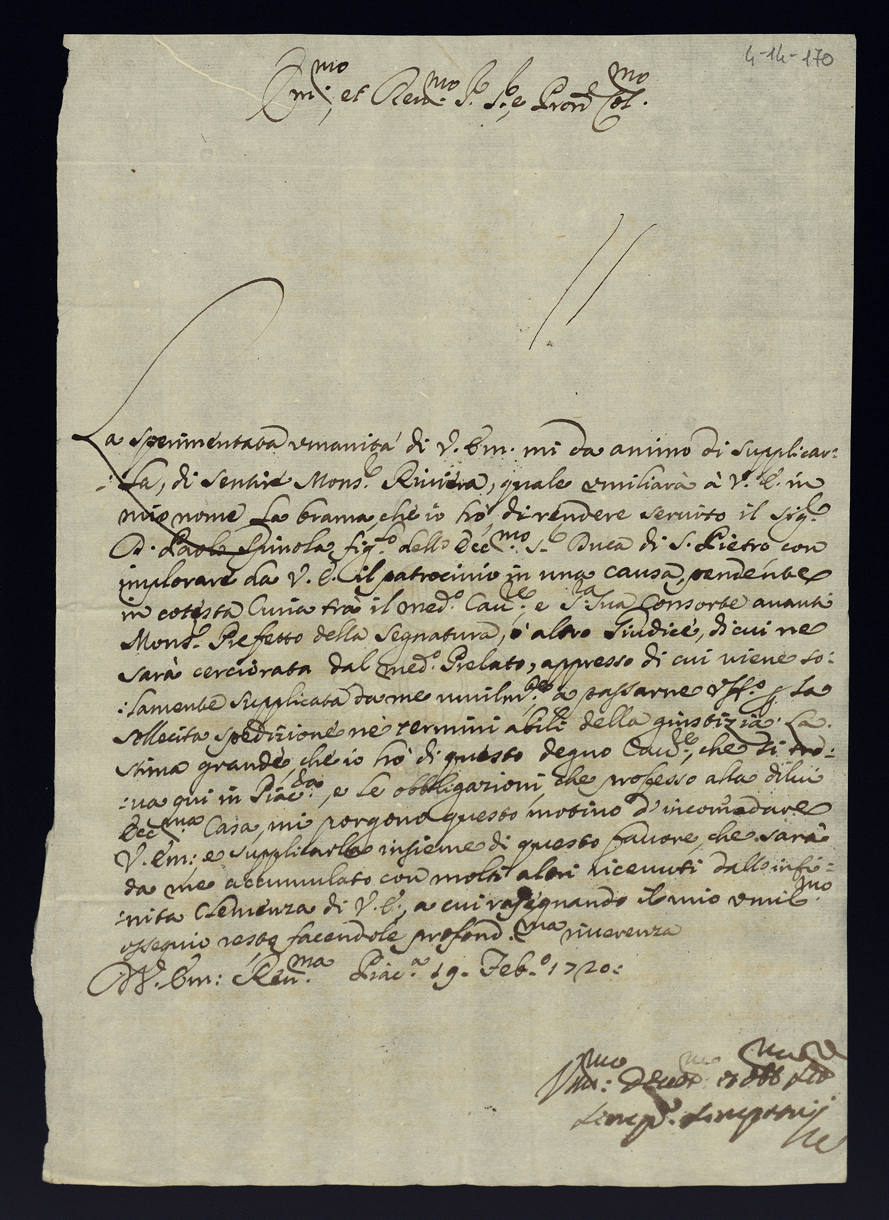 4-14-170
Em:mo et Reu:mo Sr. Sr. e Pron Col:mo
La sperimentata vmanità di V. Em. mi da animo di supplicar:
:La, di sentire Mons.r Riviera, quale vmiliarà à V. E. in
mio nome La brama, che io hò di rendere seruito il sig.r
D. Paolo Spinola fig.lo dello Ecc.mo S.r Duca di S. Pietro con
implorare da V. E. il patrocinio in una causa, pendente
in cotesta Curia trà il med.o Cau.re, e S.ra sua Consorte auanti
Mons.r Prefetto della Segnatura, ò altro Giudice, di cui ne
sarà cerciorata dal med.o Prelato, appresso di cui uiene so:
:lamente supplicata da me umilm.te à passarne Uff.o p La
sollecita spedizione ne termini abili della giustizia. La
stima grande, che io hò di questo degno Cau.re, che si tro:
:ua qui in Piac.za, e le obbligazioni, che professo alla di lui
Ecc.ma Casa, mi porgono questo motiuo d'incomodare
V. Em: e supplicarla insieme di questo fauore, che sarà
da me accumulato con molti altri riceuuti dalla infi:
:nita Clemenza di V. E., a cui rassegnando il mio vmil.mo
ossequio resto facendole profond.ma riuerenza
D. V. Em: Reu.ma Piac.a 19. Feb.o 1720:
Vm:mo Deuot:mo et Obb